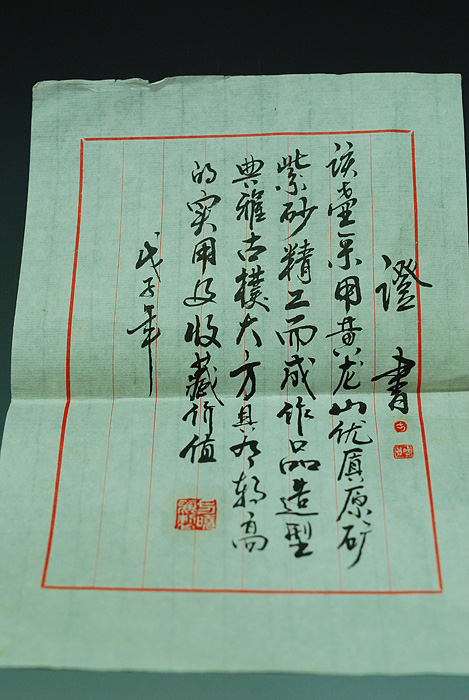 證書
该壶采用黄龙山优质原矿
紫砂精工而成作品造型
典雅古樸大方具有较高
的实用及收藏价值
戊子年